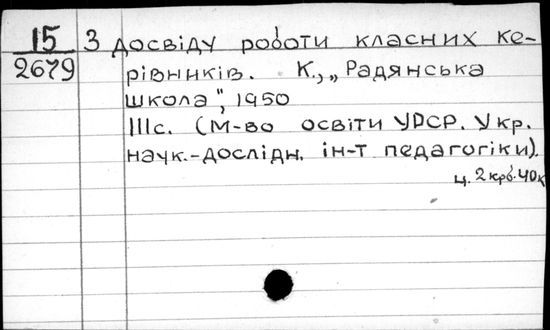 15
2679
З досвіду роботи класних ке-
рівників. К., „Радянська
школа“, 1950
111с. (М-во освіти УРСР. Укр.
наук.-дослідн. ін-т педагогіки).
ц. 2 крб. 40к